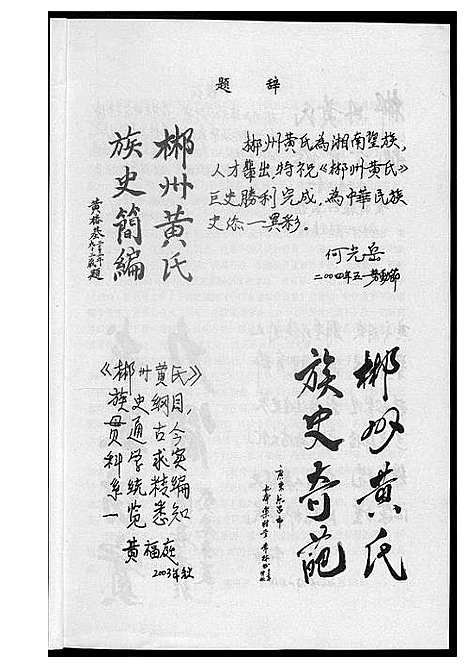 题 辞
郴州黄氏
族史簡編
郴州黄氏為湘南望族，
人才輩出.特祝《郴州黄氏》
巨史勝利完成，為中華民族
史添一異彩。
何光岳
二00四年五一劳動節
《郴州黄氏》
族史綱目，
贯通古今
科学求实
系統精編
一览悉知
黄福庭
2003年秋
郴州黄氏
族史奇葩